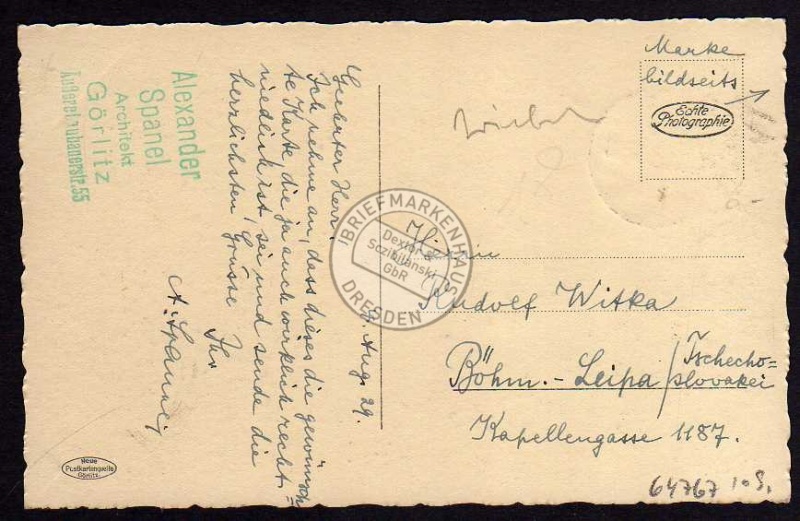 Alexander
Spanel
Architekt
Görlitz
Äußere Laubanerstr. 55
8. Aug. 29.
Geehrter Herr!
Ich nehme an, dass dieses die gewünsch=
te Karte, die ja auch wirklich recht
niedlich ist, sei und sende die
herzlichsten Grüsse
Ihr
A. Spanel
Marke
bildseits
Echte
Photographie
Herrn
Rudolf Witka
Böhm.-Leipa / Tschecho-
slovakei
Kapellengasse 1187.
Neue
Postkartengilde
Görlitz
64767 10S.
BRIEFMARKENHAUS
Dexler &
Sczibilanski
GbR
DRESDEN